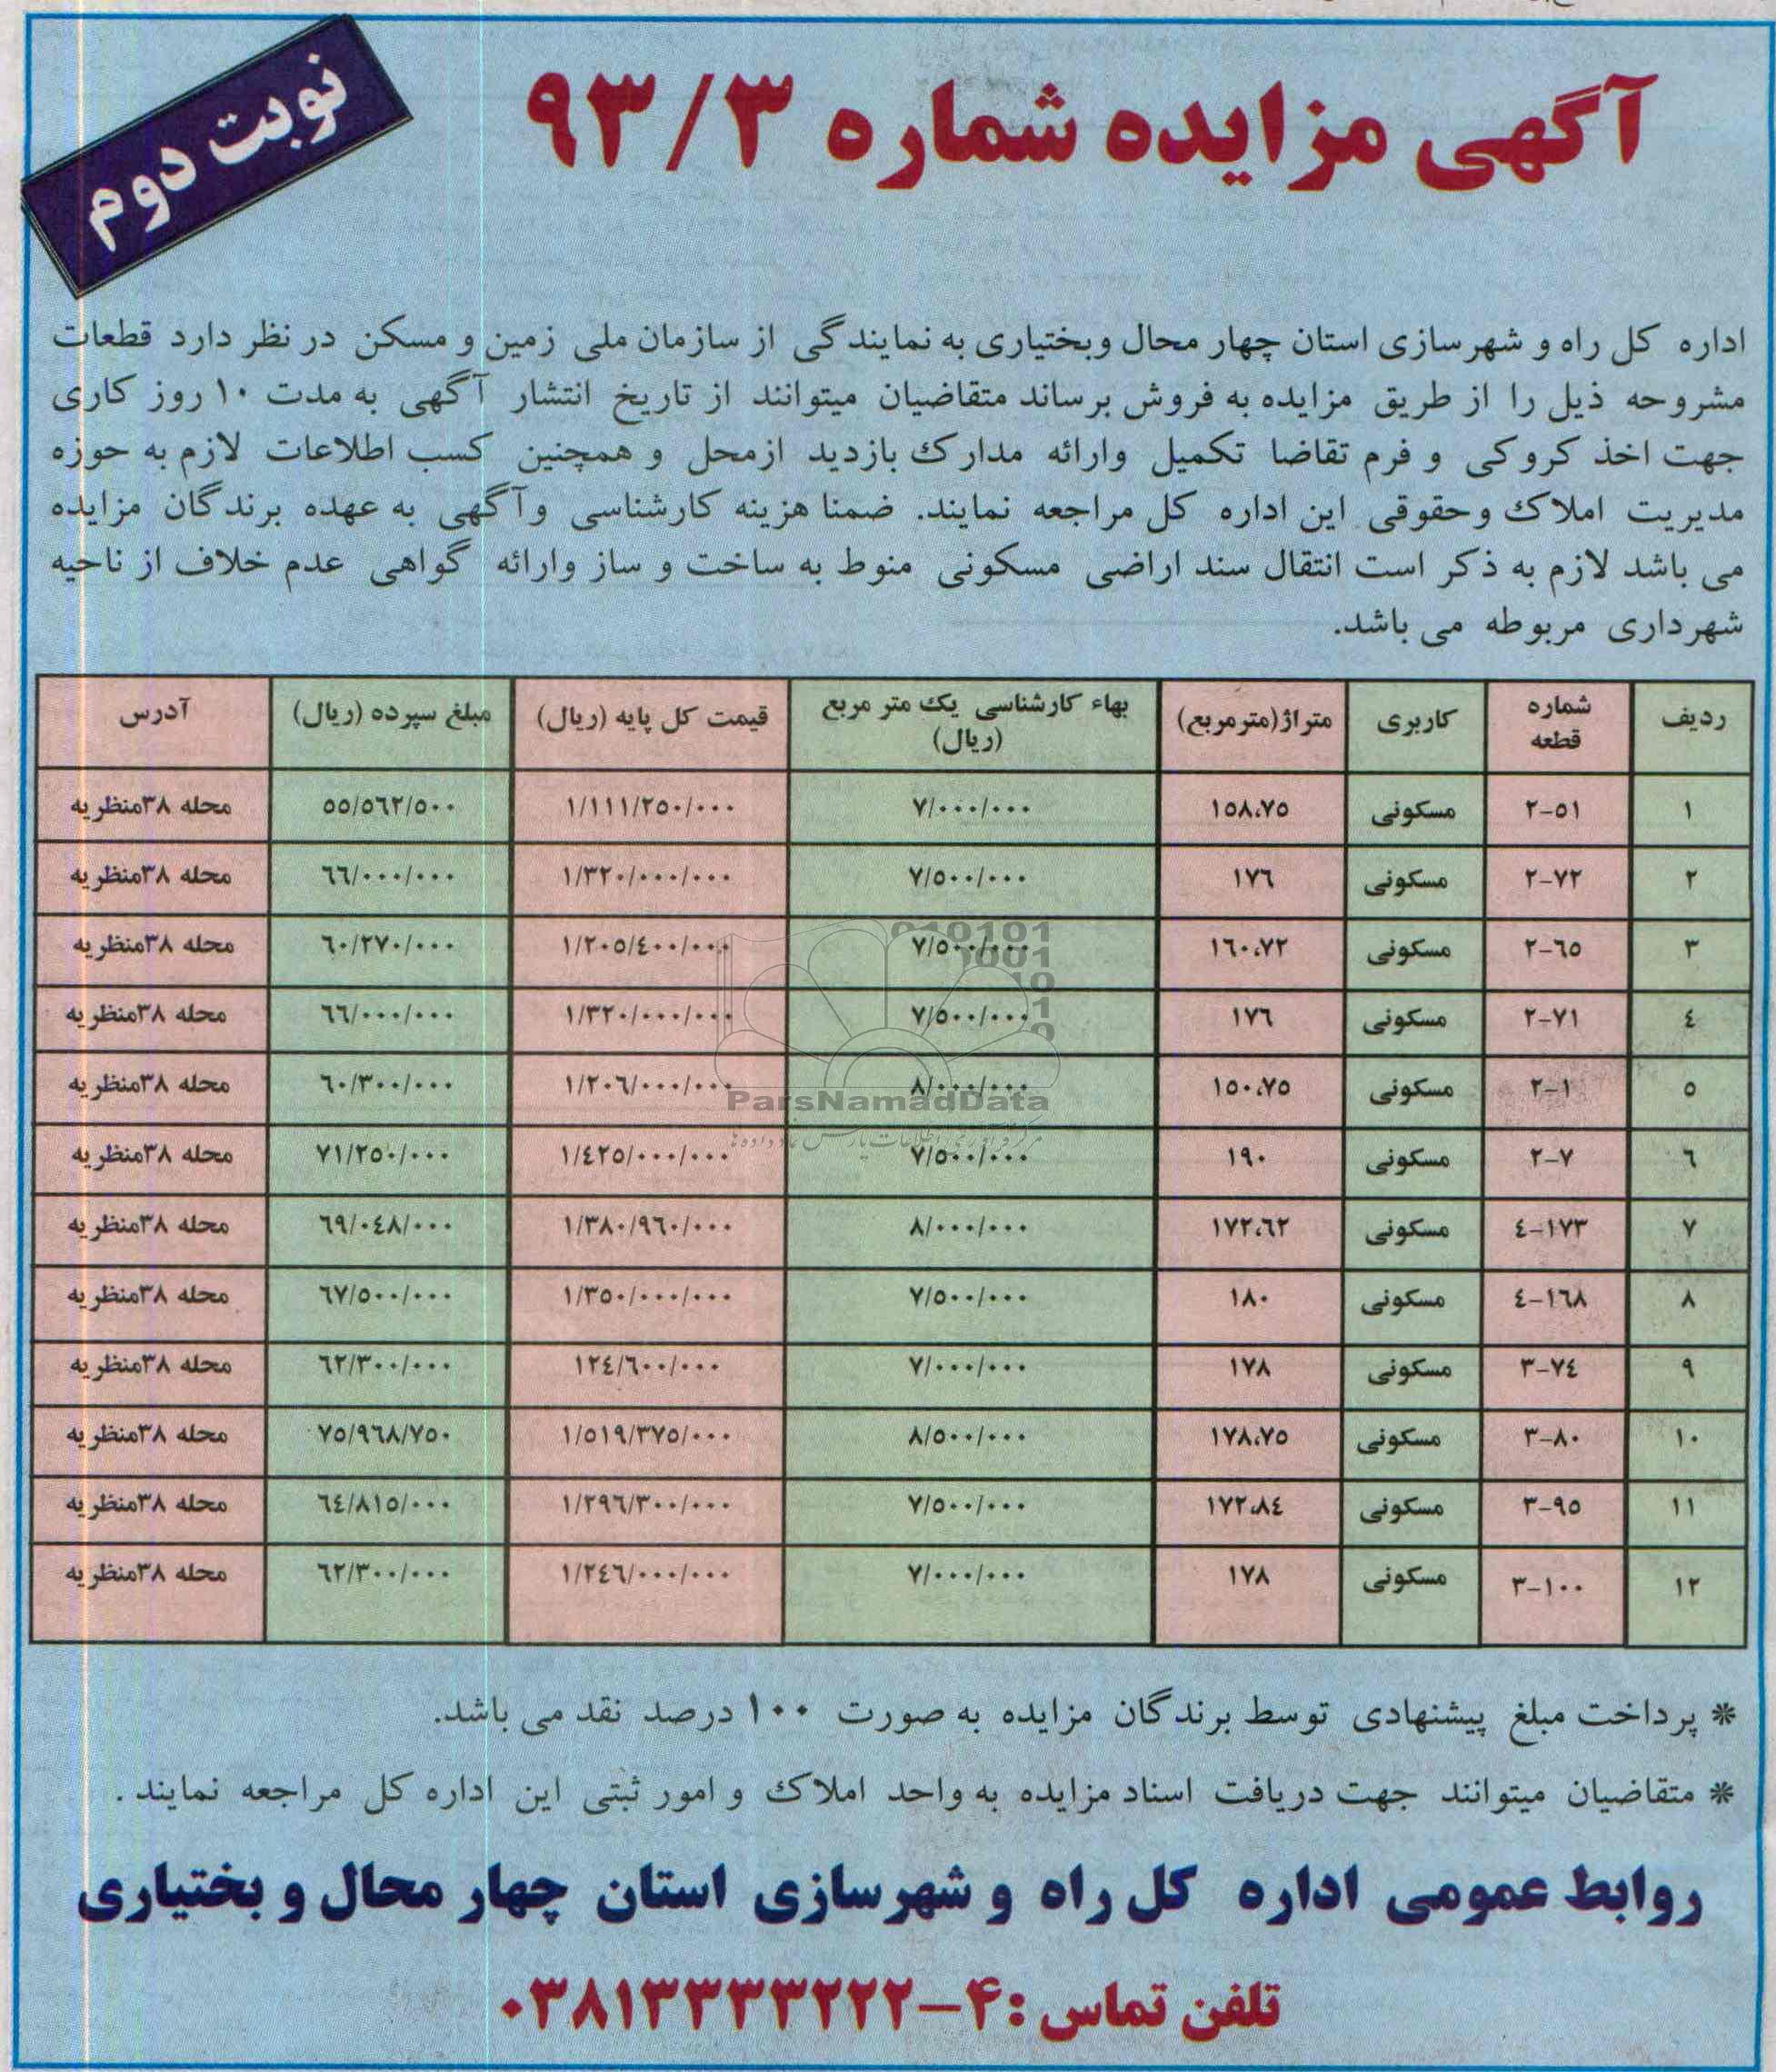 آگهی مزایده شماره ۹۳/۳
نوبت دوم
اداره کل راه و شهرسازی استان چهار محال وبختیاری به نمایندگی از سازمان ملی زمین و مسکن در نظر دارد قطعات
مشروحه ذیل را از طریق مزایده به فروش برساند متقاضیان میتوانند از تاریخ انتشار آگهی به مدت ۱۰ روز کاری
جهت اخذ کروکی و فرم تقاضا تکمیل وارائه مدارک بازدید ازمحل و همچنین کسب اطلاعات لازم به حوزه
مدیریت املاک وحقوقی این اداره کل مراجعه نمایند. ضمنا هزینه کارشناسی وآگهی به عهده برندگان مزایده
می باشد لازم به ذکر است انتقال سند اراضی مسکونی منوط به ساخت و ساز وارائه گواهی عدم خلاف از ناحیه
شهرداری مربوطه می باشد.
ردیف شماره قطعه کاربری متراژ(مترمربع) بهاء کارشناسی یک متر مربع (ریال) قیمت کل پایه (ریال) مبلغ سپرده (ریال) آدرس
۱ ۲-۵۱ مسکونی ۱۵۸،۷۵ ۷/۰۰۰/۰۰۰ ۱/۱۱۱/۲۵۰/۰۰۰ ۵۵/۵۶۲/۵۰۰ محله ۳۸منظریه
۲ ۲-۷۲ مسکونی ۱۷۶ ۷/۵۰۰/۰۰۰ ۱/۳۲۰/۰۰۰/۰۰۰ ۶۶/۰۰۰/۰۰۰ محله ۳۸منظریه
۳ ۲-۶۵ مسکونی ۱۶۰،۷۲ ۷/۵۰۰/۰۰۰ ۱/۲۰۵/٤۰۰/۰۰۰ ۶۰/۲۷۰/۰۰۰ محله ۳۸منظریه
٤ ۲-۷۱ مسکونی ۱۷۶ ۷/۵۰۰/۰۰۰ ۱/۳۲۰/۰۰۰/۰۰۰ ۶۶/۰۰۰/۰۰۰ محله ۳۸منظریه
۵ ۲-۱ مسکونی ۱۵۰،۷۵ ۸/۰۰۰/۰۰۰ ۱/۲۰۶/۰۰۰/۰۰۰ ۶۰/۳۰۰/۰۰۰ محله ۳۸منظریه
۶ ۲-۷ مسکونی ۱۹۰ ۷/۵۰۰/۰۰۰ ۱/٤۲۵/۰۰۰/۰۰۰ ۷۱/۲۵۰/۰۰۰ محله ۳۸منظریه
۷ ٤-۱۷۳ مسکونی ۱۷۲،۶۲ ۸/۰۰۰/۰۰۰ ۱/۳۸۰/۹۶۰/۰۰۰ ۶۹/۰٤۸/۰۰۰ محله ۳۸منظریه
۸ ٤-۱۶۸ مسکونی ۱۸۰ ۷/۵۰۰/۰۰۰ ۱/۳۵۰/۰۰۰/۰۰۰ ۶۷/۵۰۰/۰۰۰ محله ۳۸منظریه
۹ ۳-۷٤ مسکونی ۱۷۸ ۷/۰۰۰/۰۰۰ ۱۲٤/۶۰۰/۰۰۰ ۶۲/۳۰۰/۰۰۰ محله ۳۸منظریه
۱۰ ۳-۸۰ مسکونی ۱۷۸،۷۵ ۸/۵۰۰/۰۰۰ ۱/۵۱۹/۳۷۵/۰۰۰ ۷۵/۹۶۸/۷۵۰ محله ۳۸منظریه
۱۱ ۳-۹۵ مسکونی ۱۷۲،۸٤ ۷/۵۰۰/۰۰۰ ۱/۲۹۶/۳۰۰/۰۰۰ ۶٤/۸۱۵/۰۰۰ محله ۳۸منظریه
۱۲ ۳-۱۰۰ مسکونی ۱۷۸ ۷/۰۰۰/۰۰۰ ۱/۲٤۶/۰۰۰/۰۰۰ ۶۲/۳۰۰/۰۰۰ محله ۳۸منظریه
ParsNamadData
* پرداخت مبلغ پیشنهادی توسط برندگان مزایده به صورت ۱۰۰ درصد نقد می باشد.
* متقاضیان میتوانند جهت دریافت اسناد مزایده به واحد املاک و امور ثبتی این اداره کل مراجعه نمایند.
روابط عمومی اداره کل راه و شهرسازی استان چهار محال و بختیاری
تلفن تماس :۴-۰۳۸۱۳۳۳۳۲۲۲